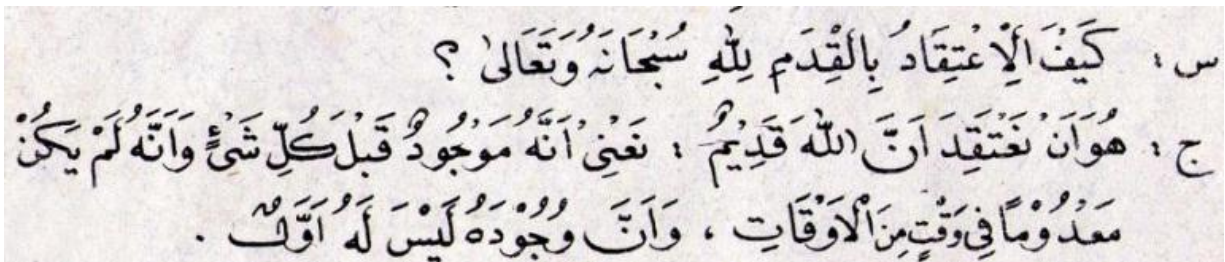 س : كَيْفَ الْاِعْتِقَادُ بِالْقِدَمِ لِلّٰهِ سُبْحَانَهُ وَتَعَالىٰ ؟
ج : هُوَ اَنْ نَعْتَقِدَ اَنَّ اللهَ قَدِيْمٌ : نَعْنِىْ اَنَّهُ مَوْجُودٌ قَبْلَ كُلِّ شَىْءٍ وَاَنَّهُ لَمْ يَكُنْ
مَعْدُوْمًا فِى وَقْتٍ مِنَ الْاَوْقَاتِ ، وَاَنَّ وُجُوْدَهُ لَيْسَ لَهُ اَوَّلٌ .